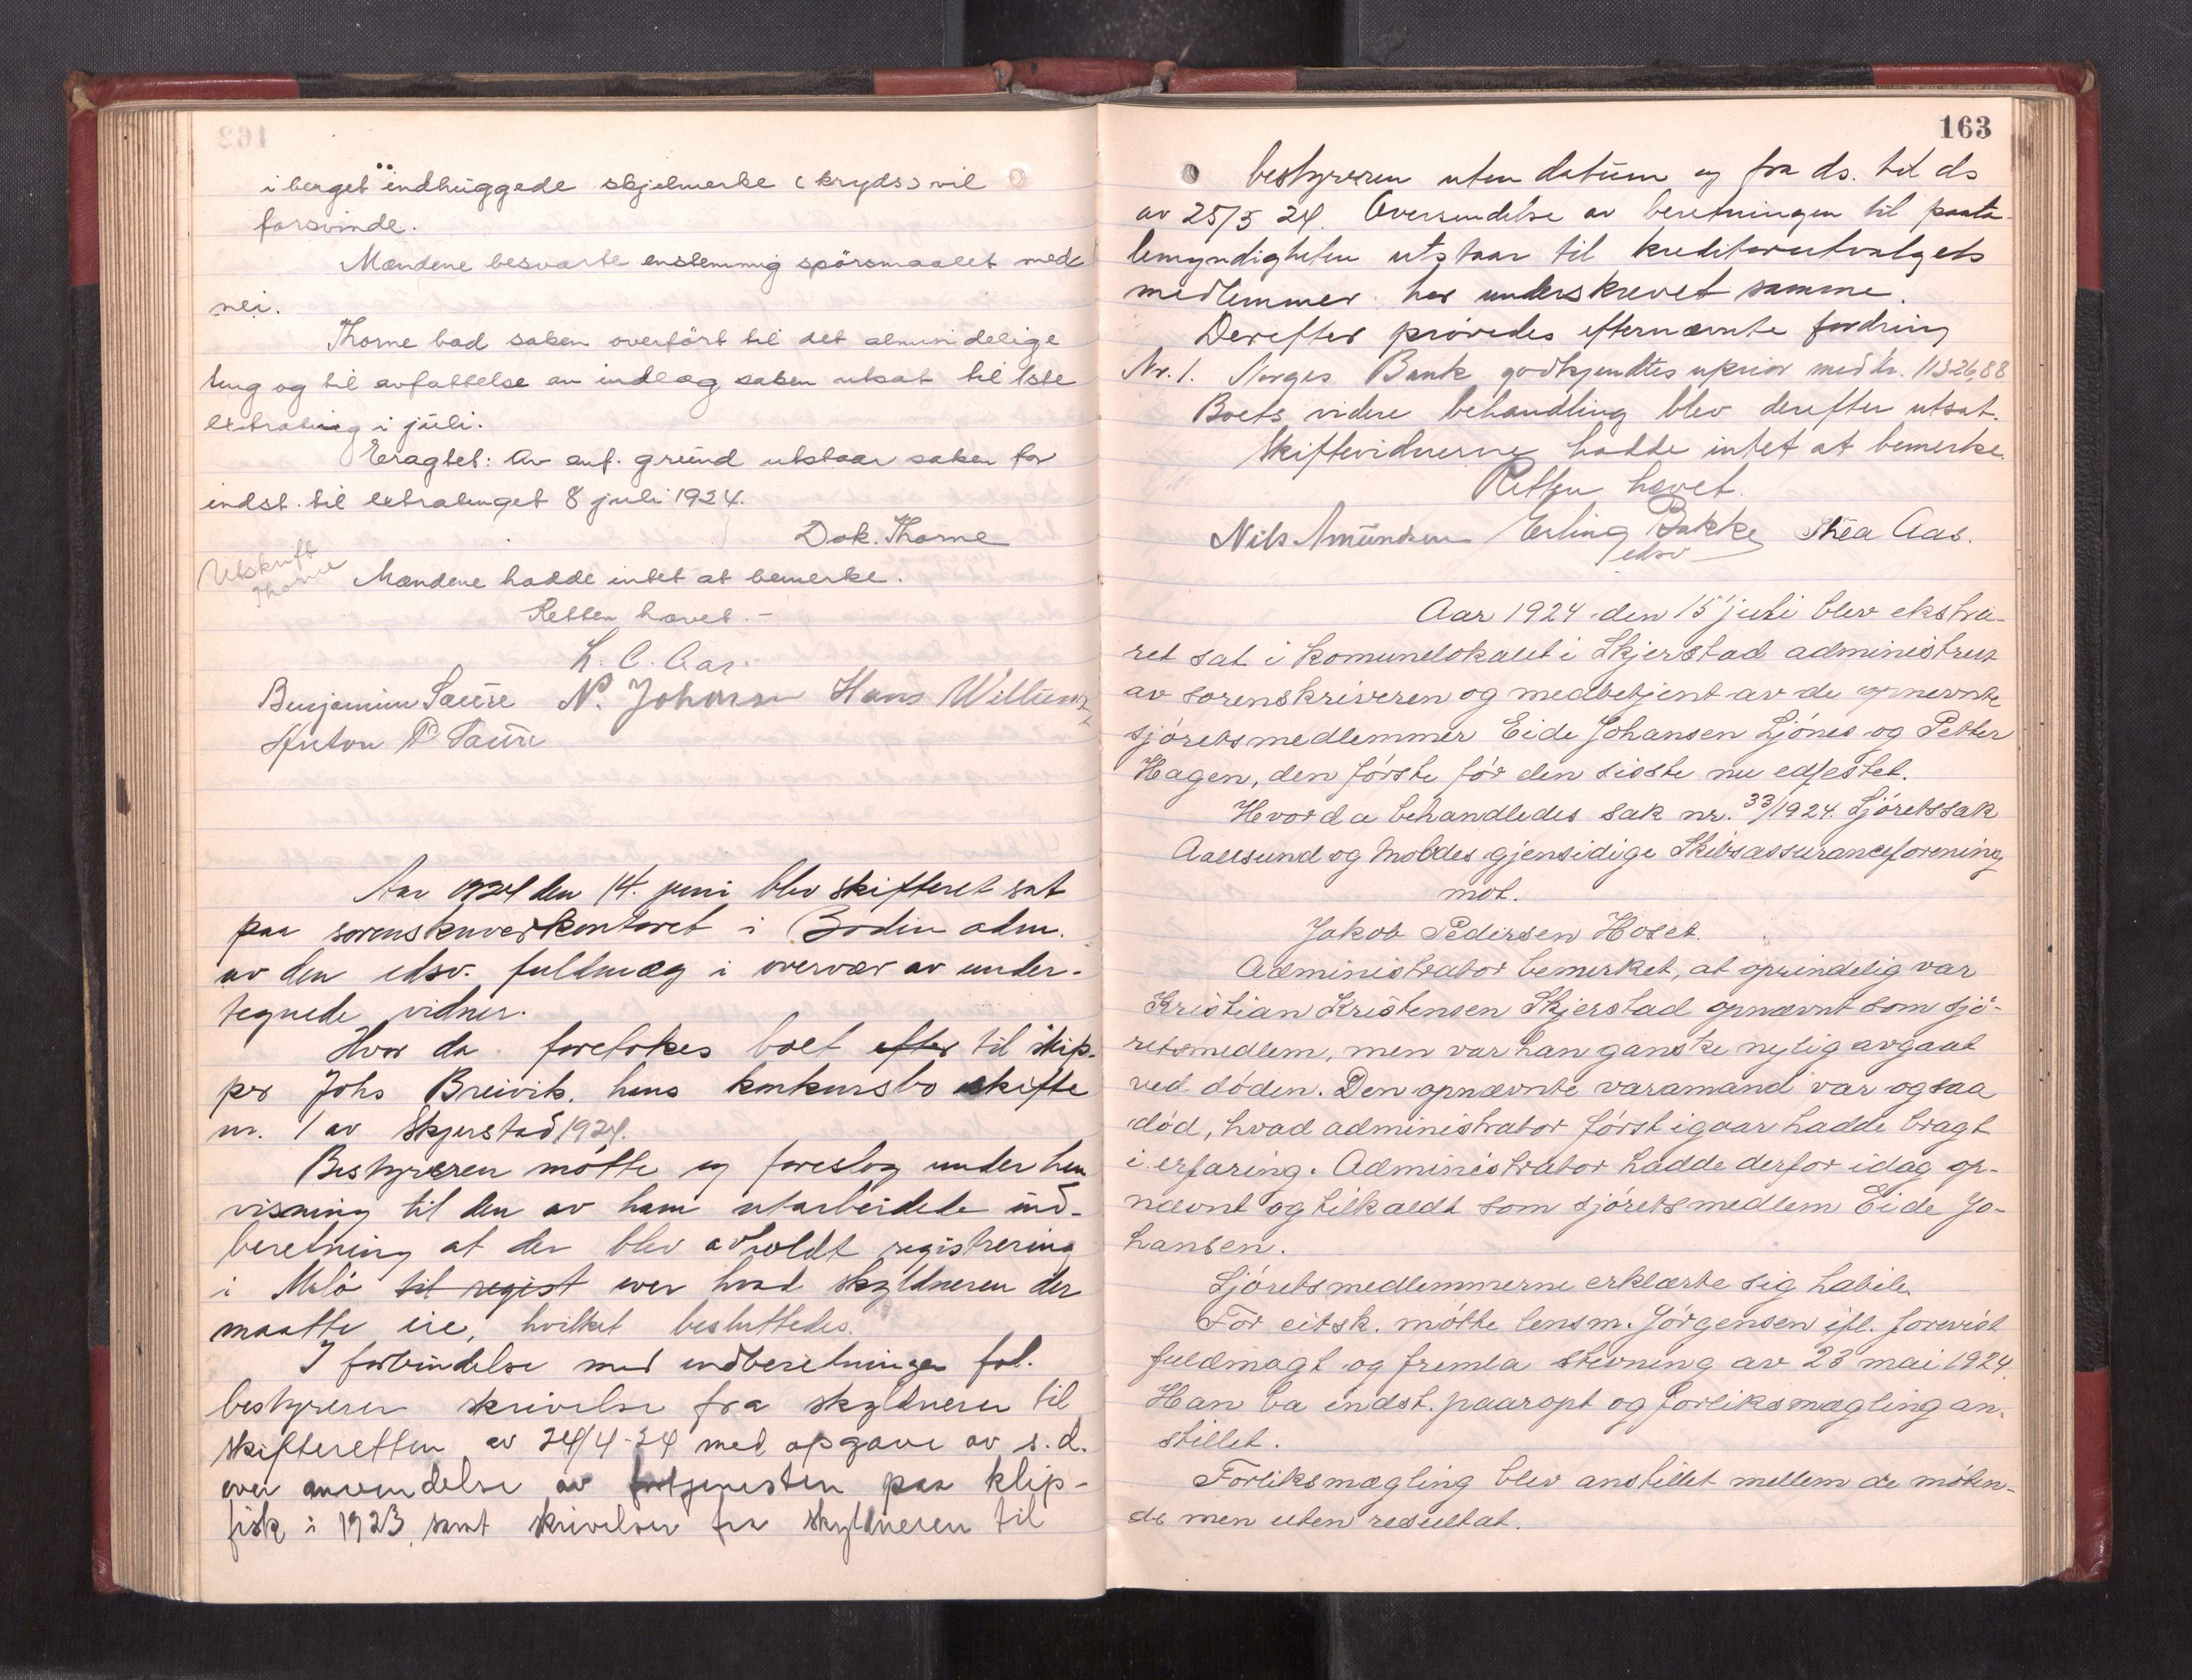 i berget indhuggede skjelmerke (kryds) vil
forsvinde.
Mændene besvarte enstemmig spörsmaalet med
nei.
Thorne bad saken overfört til det almindelige
ting og til avfattelse av indlæg saken utsat til 1ste
extrating i juli.
Eragtet: Av anf. grund utstaar saken for
indst. til extratinget 8 juli 1924.
Dok. Thorne
Utskrift
Thorne
Mændene hadde intet at bemerke.
Retten hævet.-
L. C. Aas.
Benjamin Saure N. Johansen Hans Willums
Anton P Saure
Aar 1924 den 14. juni blev skifteret sat
paa sorenskriverkontoret i Bodin adm.
av den edsv. fuldmæg i overvær av under-
tegnede vidner.
Hvor da foretokes boet efter til skip-
per Johs Breivik, hans konkursbo skifte
nr. 1 av Skjerstad 1924.
Bestyreren mötte og foreslog under hen
visning til den av ham utarbeidede ind-
beretning at der blev avholdt registrering
i Melö til regist over hvad skyldneren der
maatte eie, hvilket besluttedes.
I forbindelse med indberetningen fol.
bestyreren skrivelse fra skyldneren til
skifteretten av 24/4-24 med opgave av s.d.
over anvendelse av fortjenesten paa klip-
fisk i 1923, samt skrivelser fra skyldneren til
163
bestyreren uten datum og fra ds. til ds
av 25/5 24. Oversendelse av beretningen til paata-
lemyndigheten utstaar til kreditorutvalgets
medlemmer har underskrevet samme.
Derefter prövedes efternævnte fordring
Nr. 1. Norges Bank godkjendtes uprior med kr. 11326,88
Boets videre behandling blev derefter utsat.
Skiftevidnerne hadde intet at bemerke.
Retten hævet.
Nils Amundsen Erling Bakke Thea Aas.
edsv
Aar 1924 den 15 juli blev ekstra-
ret sat i komunelokalet i Skjerstad administrert
av sorenskriveren og medbetjent av de opnevnte
sjöretsmedlemmer Eide Johansen Ljönes og Petter
Hagen, den förste för den sisste nu edfestet.
Hvorda behandledes sak nr. 33/1924. Sjöretssak
Aalesund og Moldes gjensidige Skibsassuranceforening
mot.
Jakob Pedersen Hoset.
Administrator bemerket, at oprindelig var
Kristian Kristensen Skjerstad opnævnt som sjö-
retsmedlem, men var han ganske nylig avgaat
ved döden. Den opnævnte varamand var ogsaa
död, hvad administrator först igaar hadde bragt
i erfaring. Administrator hadde derfor idag op-
nævnt og tilkaldt som sjöretsmedlem Eide Jo-
hansen.
Sjöretsmedlemmerne erklærte sig habile.
For citsk. mötte lensm. Jörgensen ifl. forevist
fuldmagt og fremla stevning av 23 mai 1924.
Han ba indst. paaropt og forliksmægling an-
stillet.
Forliksmægling blev anstillet mellem de möten-
de men uten resultat.